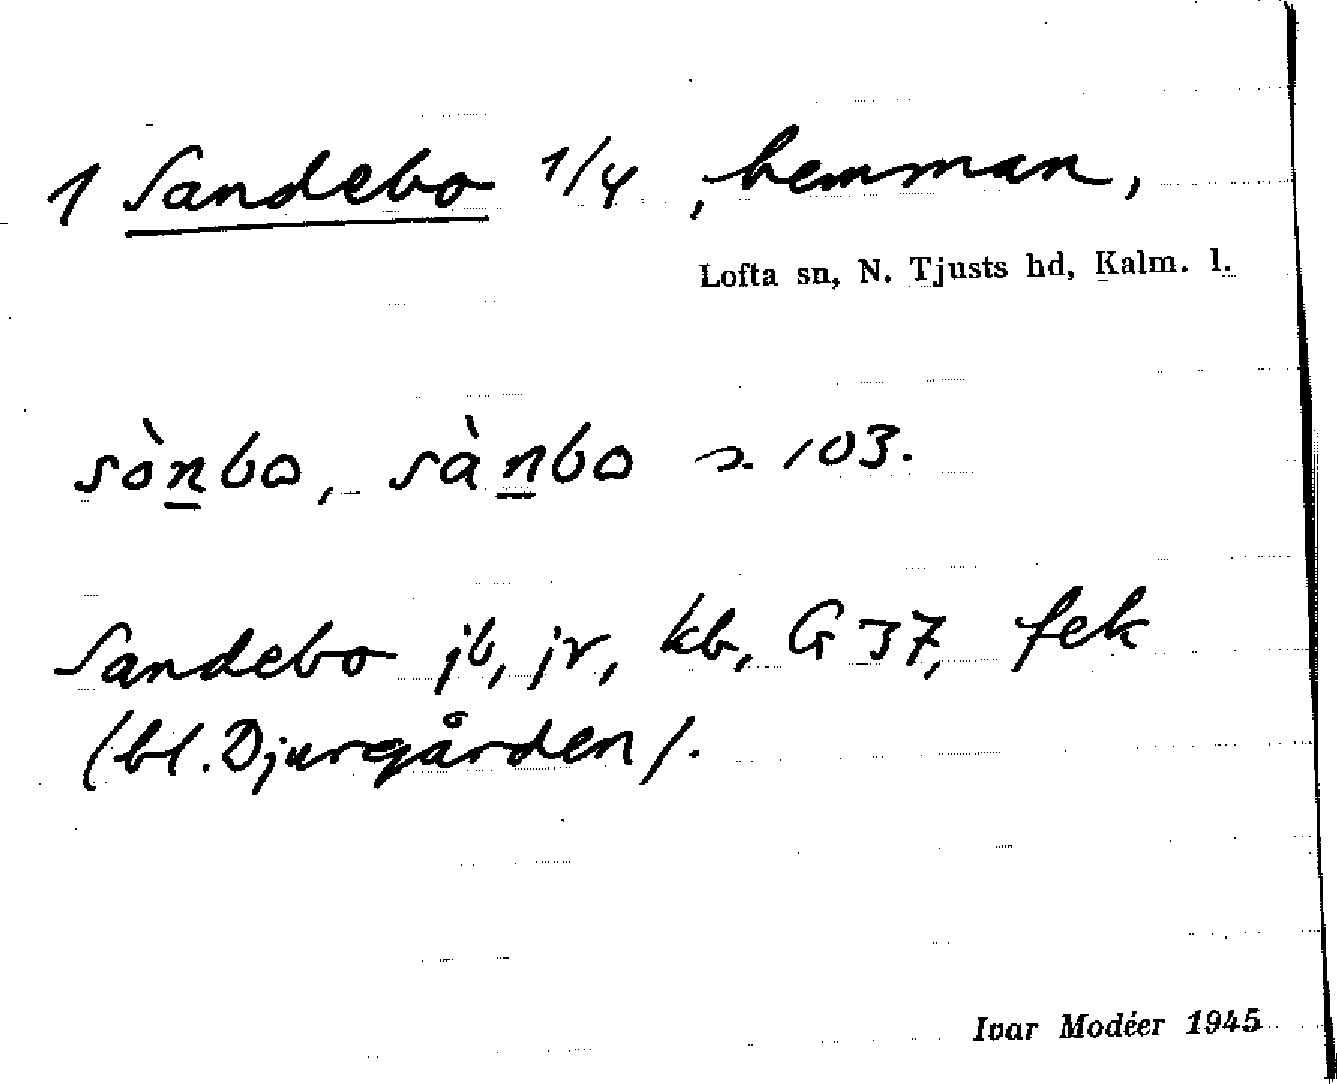 1 Sandebo 1/4, hemman,
Lofta sn, N. Tjusts hd, Kalm. l.
sònbo, sànbo 2. 103.
Sandebo jb, jr, kb, G 37, fek
(bl. Djurgården).
Ivar Modéer 1945